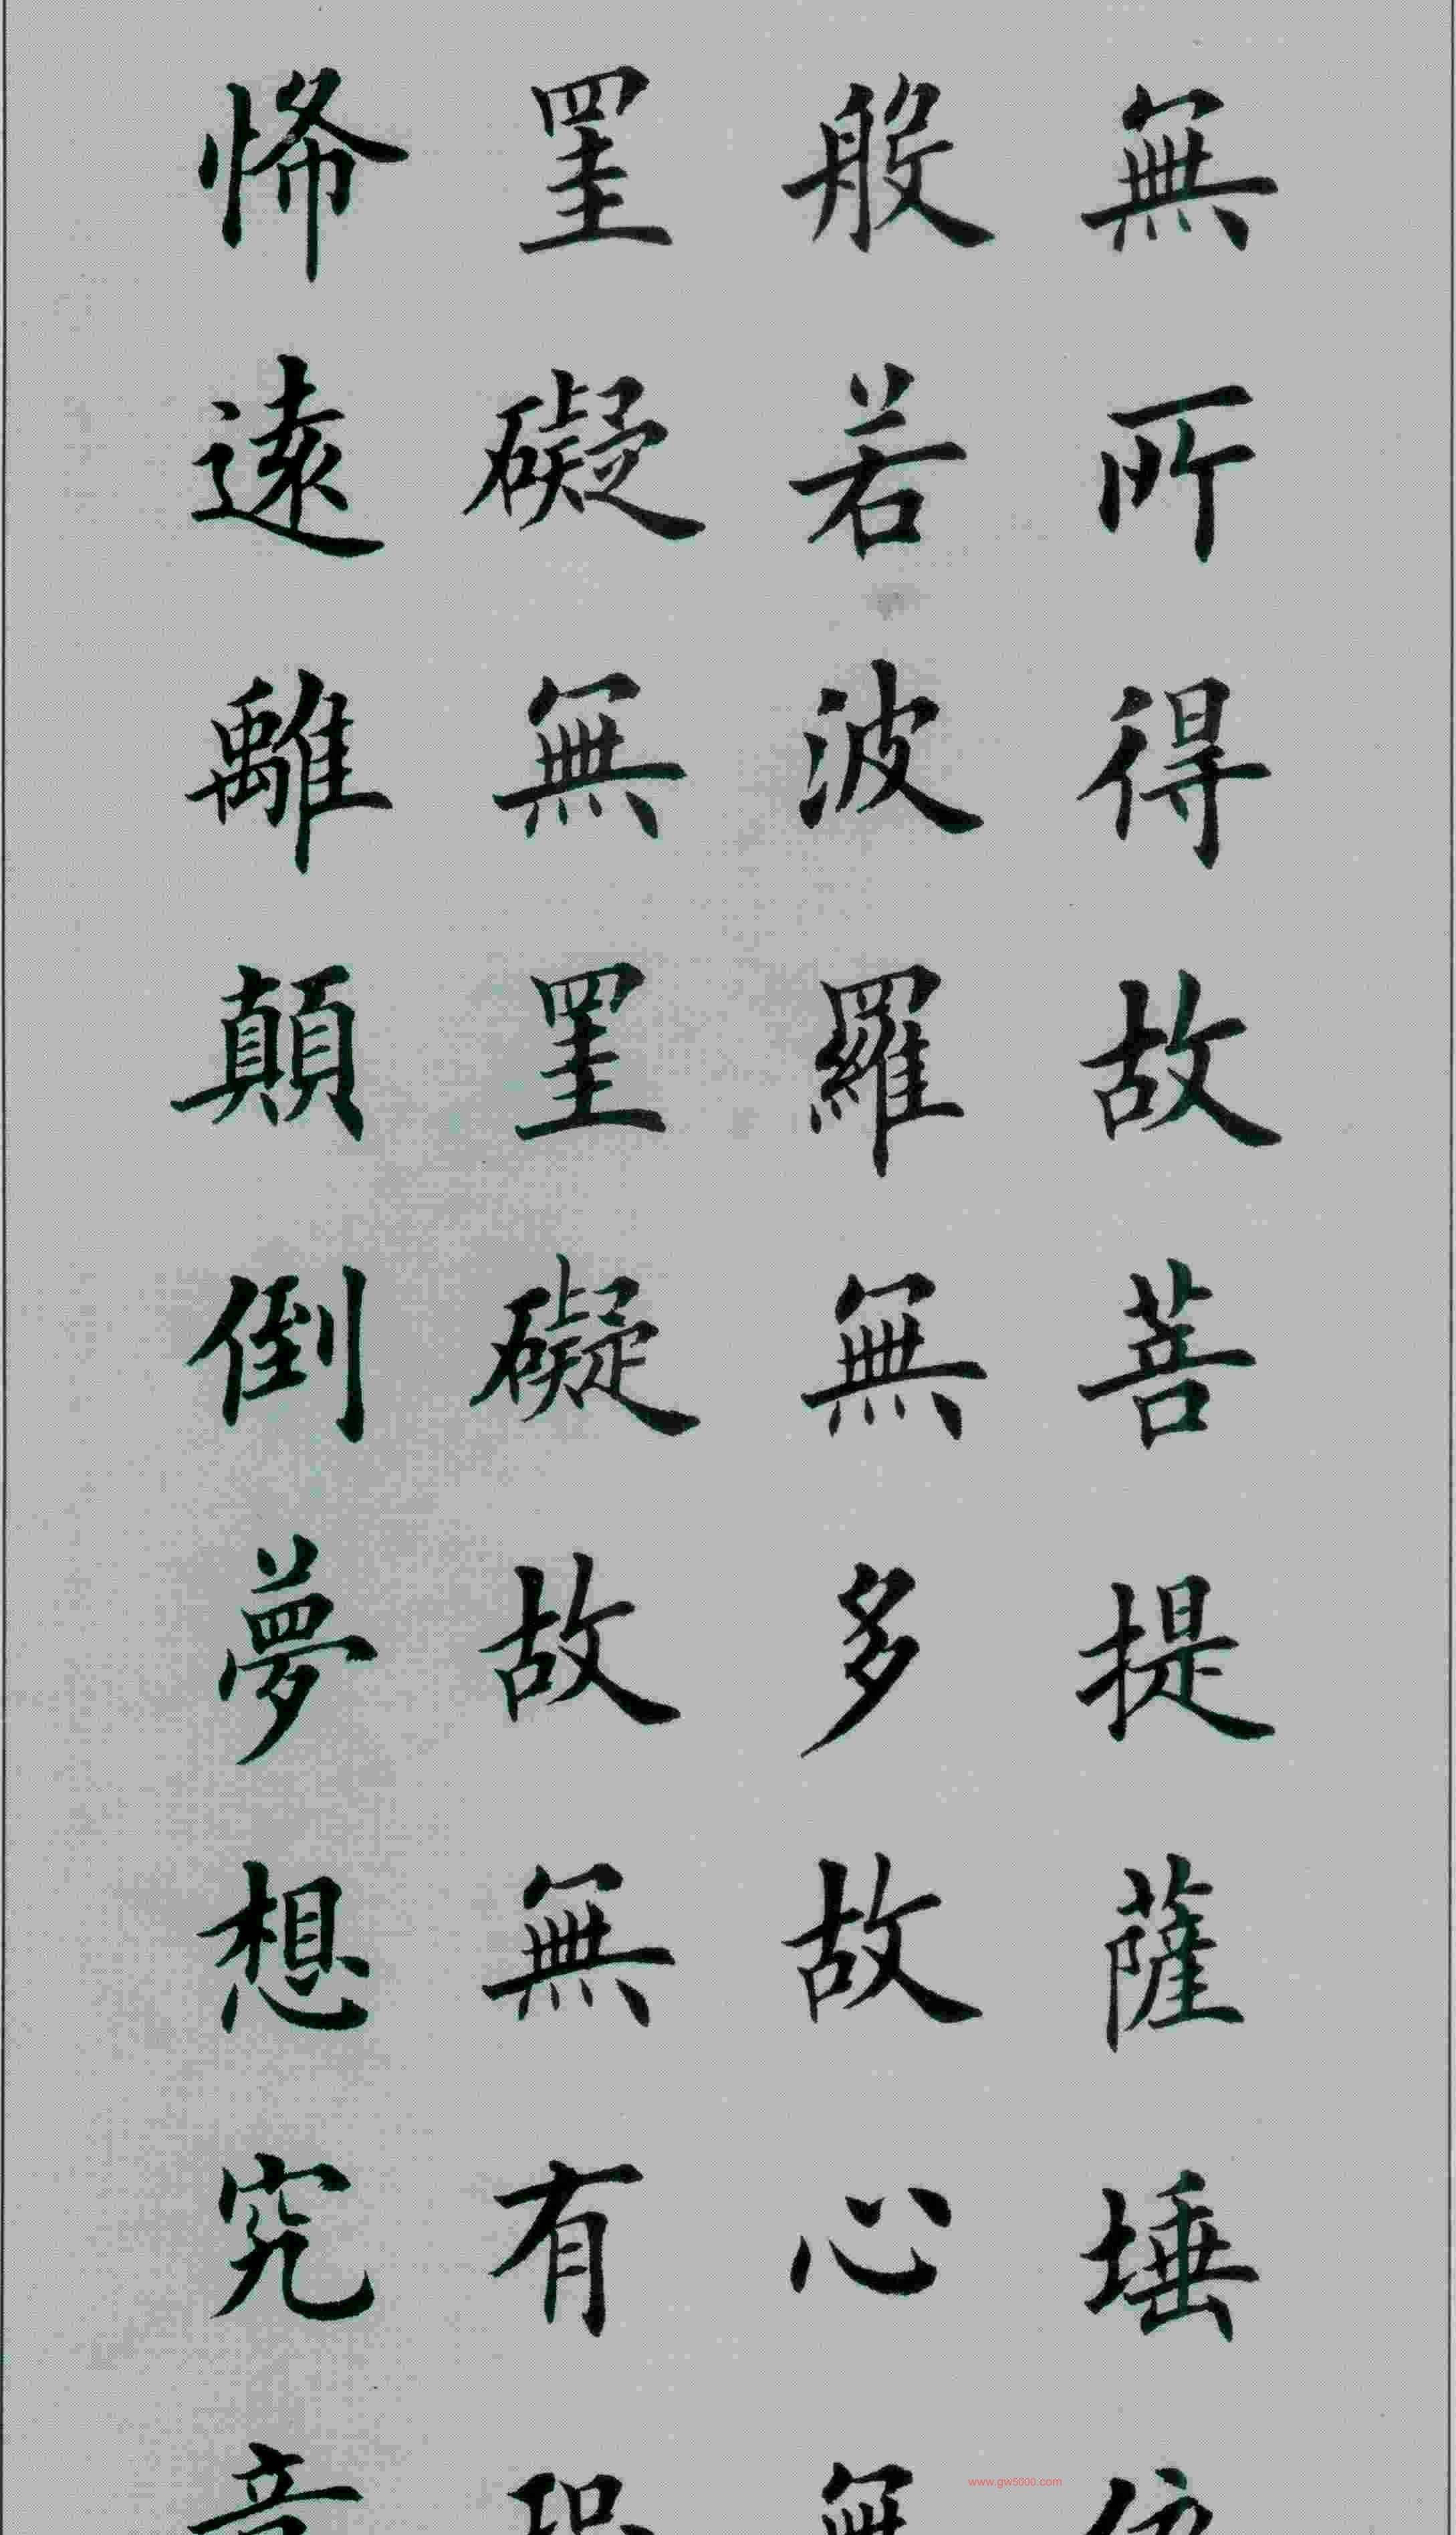 無所得故菩提薩埵依
般若波羅無多故心無
罣礙無罣礙故無有恐
悕遠離顛倒夢想究竟
www.gw5000.com